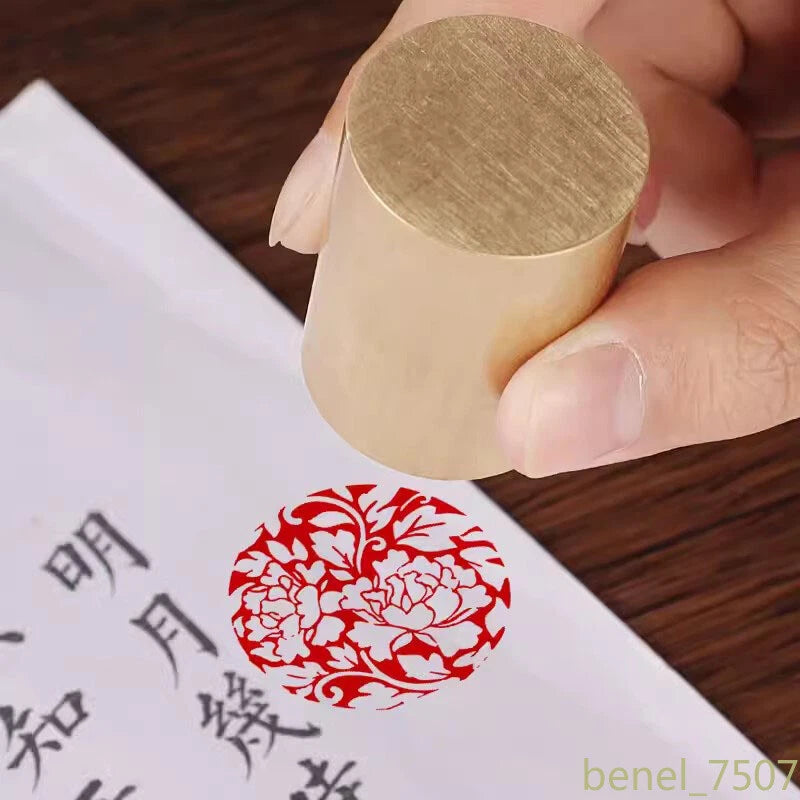 明月幾
知
benel_7507